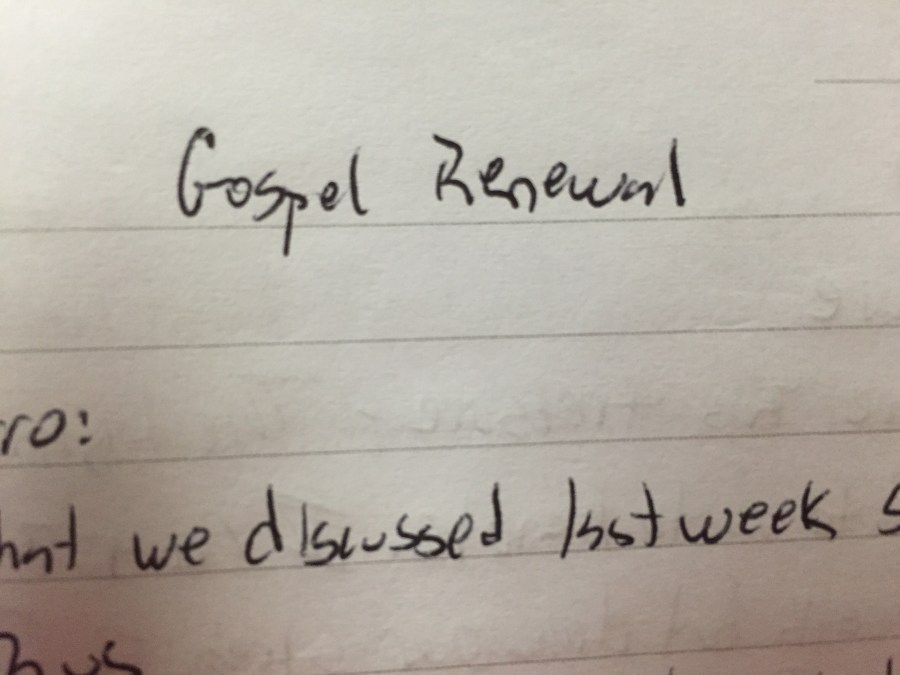 Gospel Renewal
ro:
hat we discussed last week s
hus